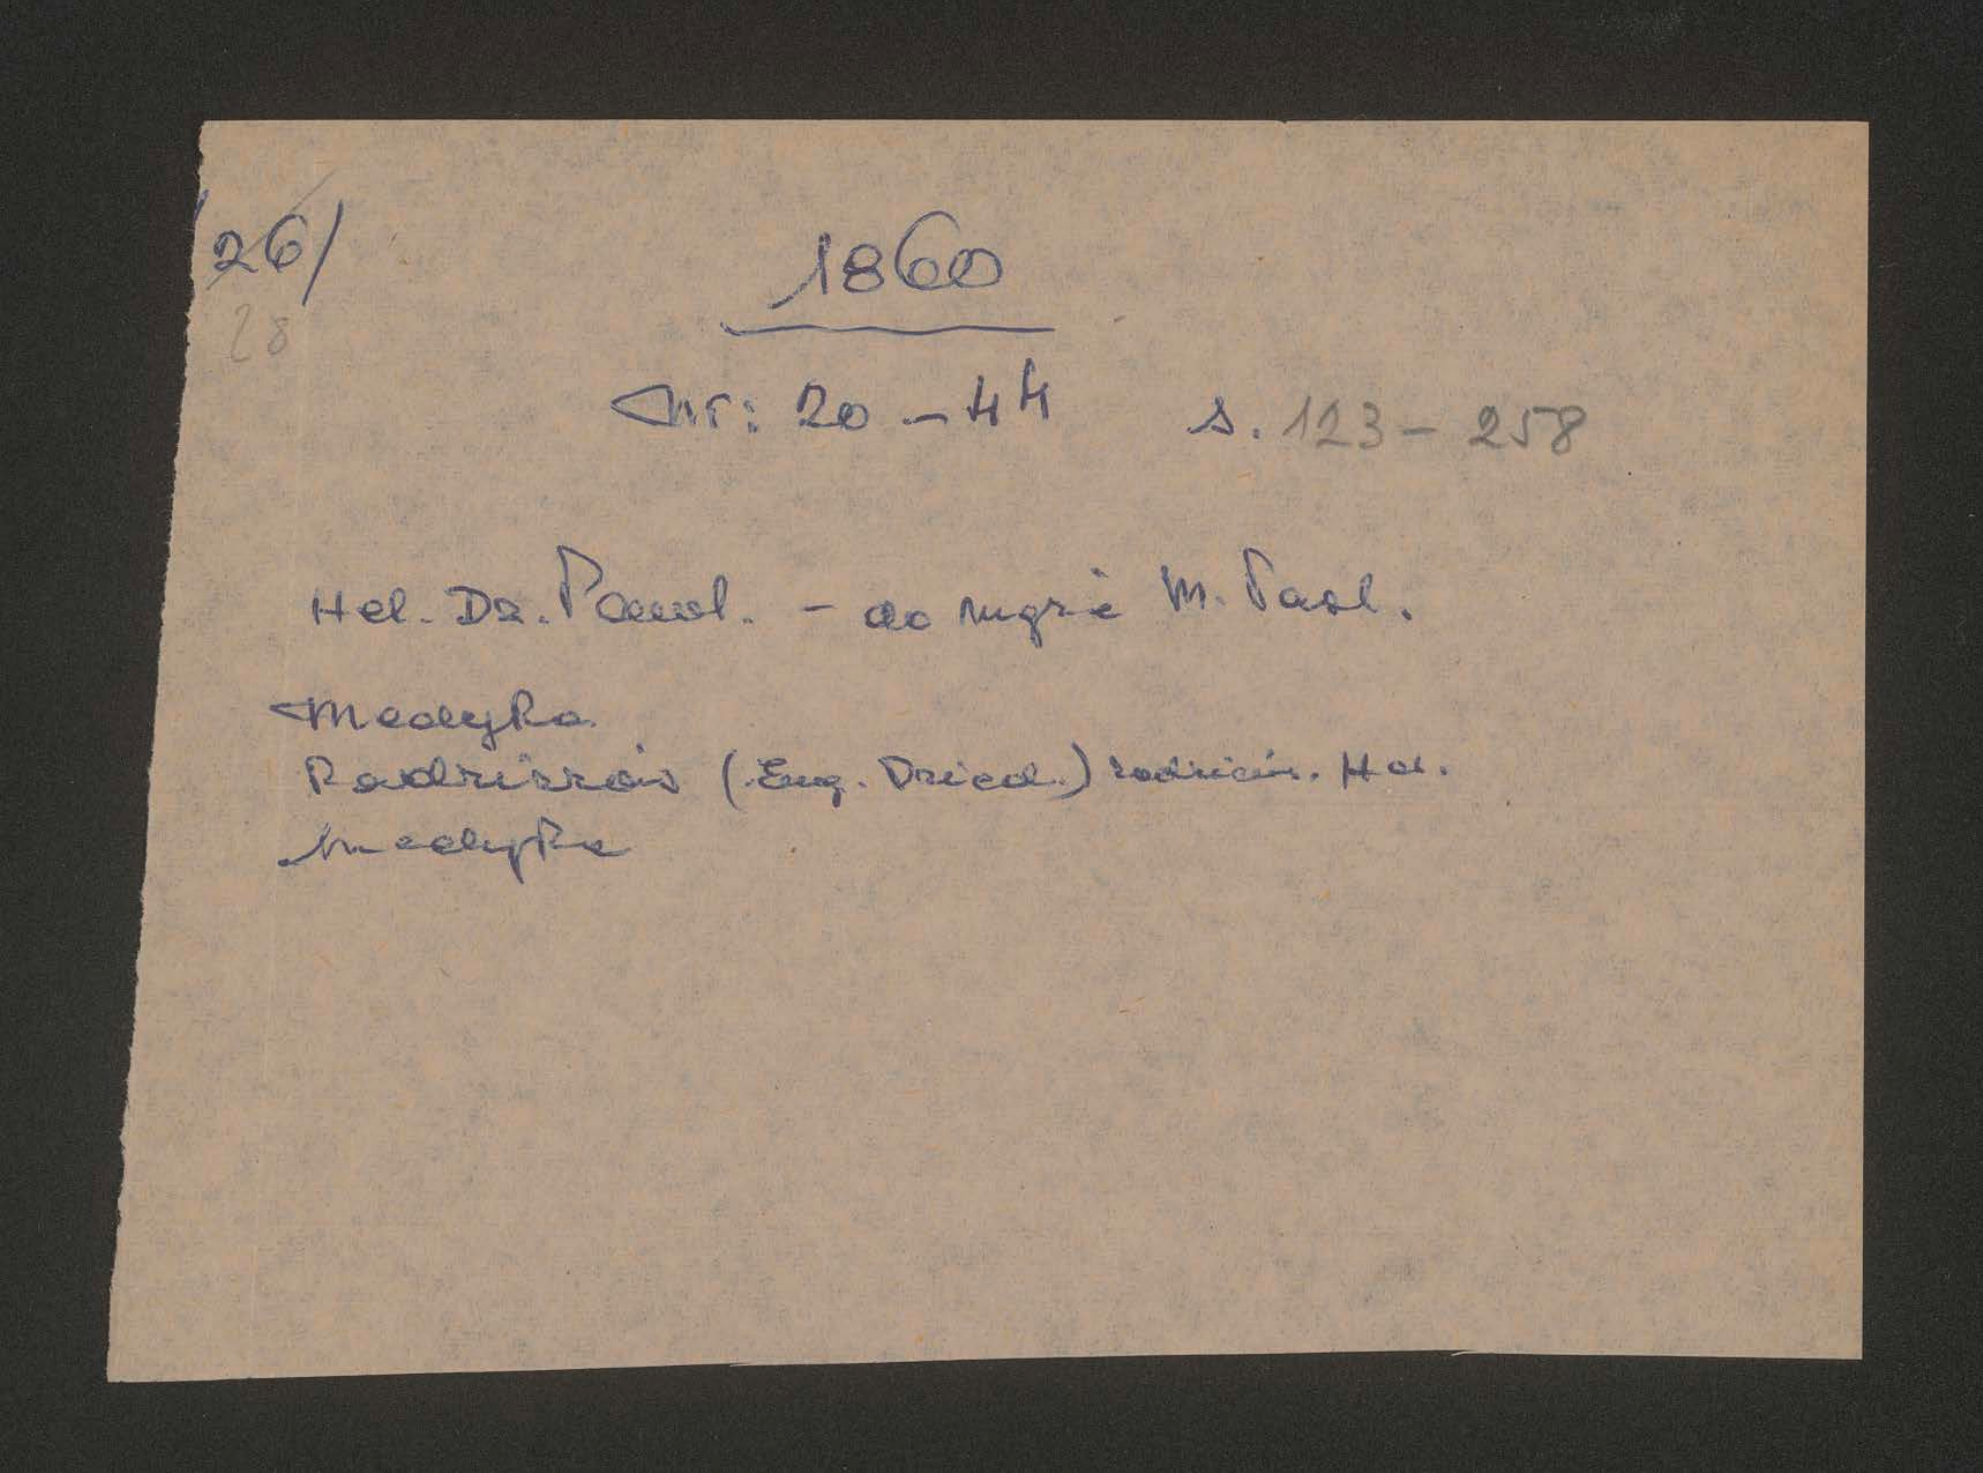 26/
28
1860
Nr: 20 – 44 s. 123 – 258
Hel. Dz. Pawl. – do męża M. Pawl.
Medyka
Radziszów (Eug. Dzied.) rodzicie. Hel.
Medyka